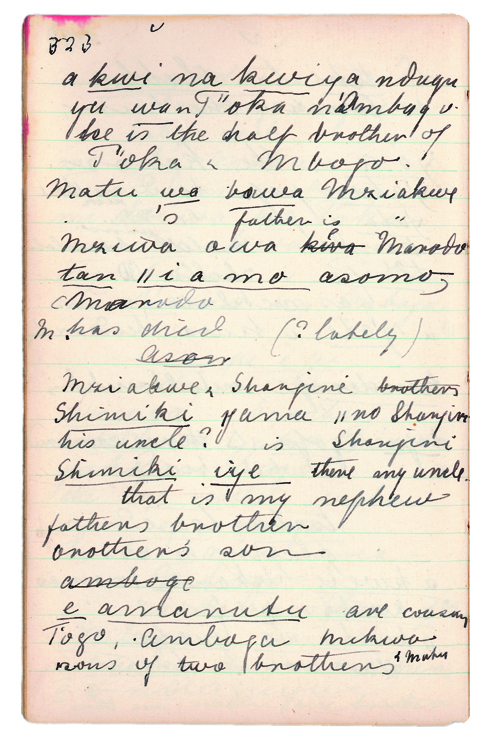 323
a kwi na kwiya ndugu
yu wan T"oka n'Ambago
he is the half brother of
T'oka & Mbogo.
Matu wo bawa Mziakwe
's father is "
Mziwa owa kiva Marodo
tan //i a mo asomo,
Marodo
M. has died (? lately)
ason
Mziakwe & Shangini brothers
Shimiki yama //no Shangini
his uncle? is Shangini
Shimiki iye there my uncle.
that is my nephew
fathers brother
brother's son
amboge
e amanutu are cousins
Togo, Amboga mikwa
sons of two brothers